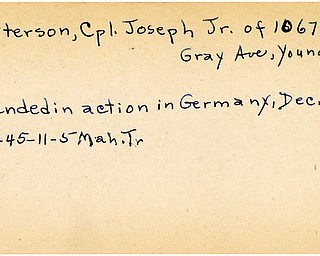 terson, Cpl. Joseph Jr. of 1067
Gray Ave, Youn
nded in action in Germany, Dec.
-45-11-5 Mah. Tr